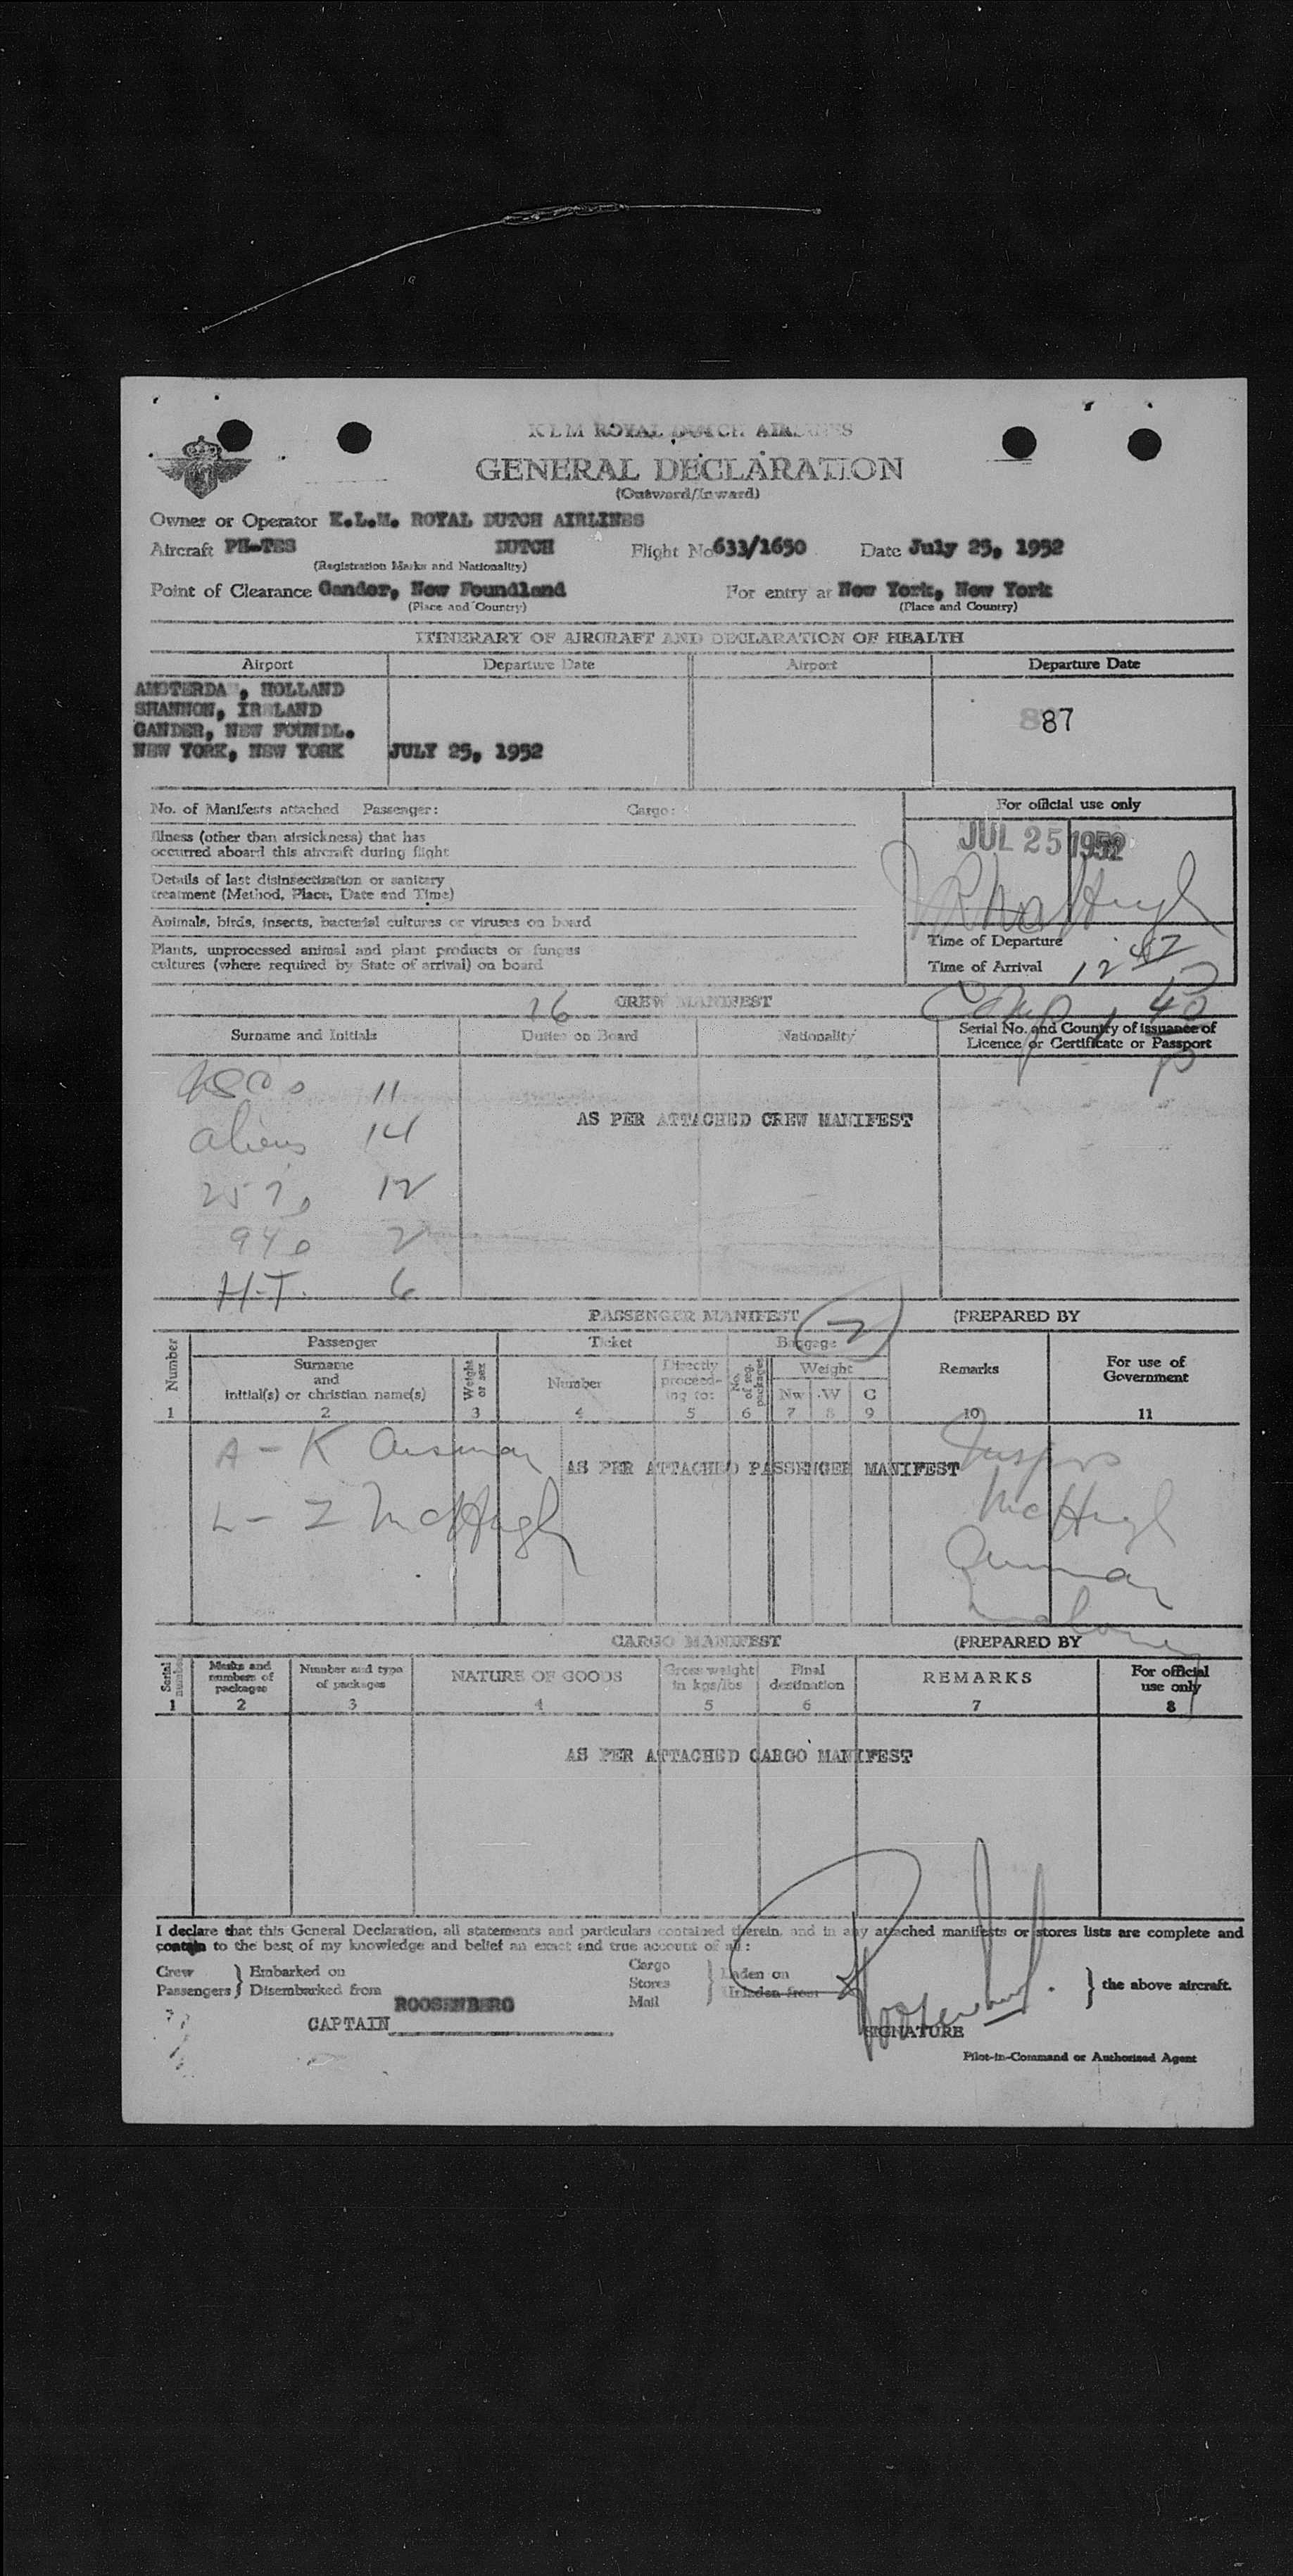 KLM ROYAL DUTCH AIRLINES
GENERAL DECLARATION
(Outward/Inward)
Owner or Operator K.L.M. ROYAL DUTCH AIRLINES
Aircraft PH-TES DUTCH Flight No 633/1650 Date July 25, 1952
(Registration Marks and Nationality)
Point of Clearance Gander, New Foundland For entry at New York, New York
(Place and Country) (Place and Country)
ITINERARY OF AIRCRAFT AND DECLARATION OF HEALTH
Airport Departure Date Airport Departure Date
AMSTERDA , HOLLAND
SHANNON, IRELAND
GANDER, NEW FOUNDL.
NEW YORK, NEW YORK JULY 25, 1952
87
No. of Manifests attached Passenger: Cargo:
For official use only
Illness (other than airsickness) that has
occurred aboard this aircraft during flight
JUL 25 1952
Details of last disinsectization or sanitary
treatment (Method, Place, Date and Time)
Animals, birds, insects, bacterial cultures or viruses on board
Plants, unprocessed animal and plant products or fungus
cultures (where required by State of arrival) on board
Time of Departure
Time of Arrival 12 42
16 CREW MANIFEST
Surname and Initials Duties on Board Nationality Serial No. and Country of issuance of
Licence or Certificate or Passport
USCs 11
AS PER ATTACHED CREW MANIFEST
aliens 14
257s 12
94s 2
H.T. 6
PASSENGER MANIFEST (PREPARED BY
2
Number Passenger Ticket Baggage Remarks For use of
Government
Surname
and
initial(s) or christian name(s) Weight
or sex Number Directly
proceed-
ing to: No.
of seg.
packages Weight
Nw W C
1 2 3 4 5 6 7 8 9 10 11
A - K
AS PER ATTACHED PASSENGER MANIFEST
L - Z McHugh
McHugh
CARGO MANIFEST (PREPARED BY
Serial
number Marks and
numbers of
packages Number and type
of packages NATURE OF GOODS Gross weight
in kgs/lbs Final
destination REMARKS For official
use only
1 2 3 4 5 6 7 8
AS PER ATTACHED CARGO MANIFEST
I declare that this General Declaration, all statements and particulars contained therein, and in any attached manifests or stores lists are complete and
contain to the best of my knowledge and belief an exact and true account of all:
Crew
Passengers } Embarked on
Disembarked from Cargo
Stores
Mail } Laden on
Unladen from } the above aircraft.
ROOSENBERG
CAPTAIN
SIGNATURE
Pilot-in-Command or Authorized Agent